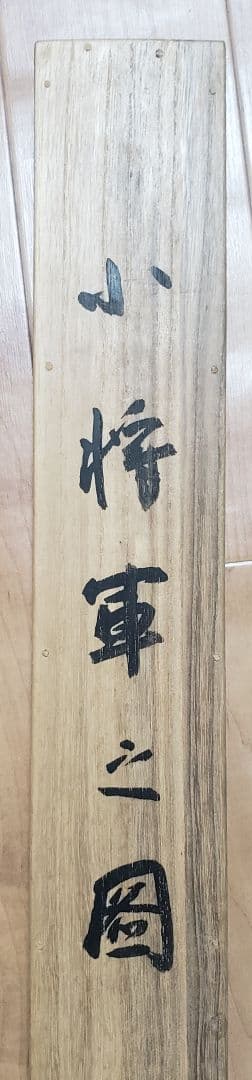 小将軍之圖